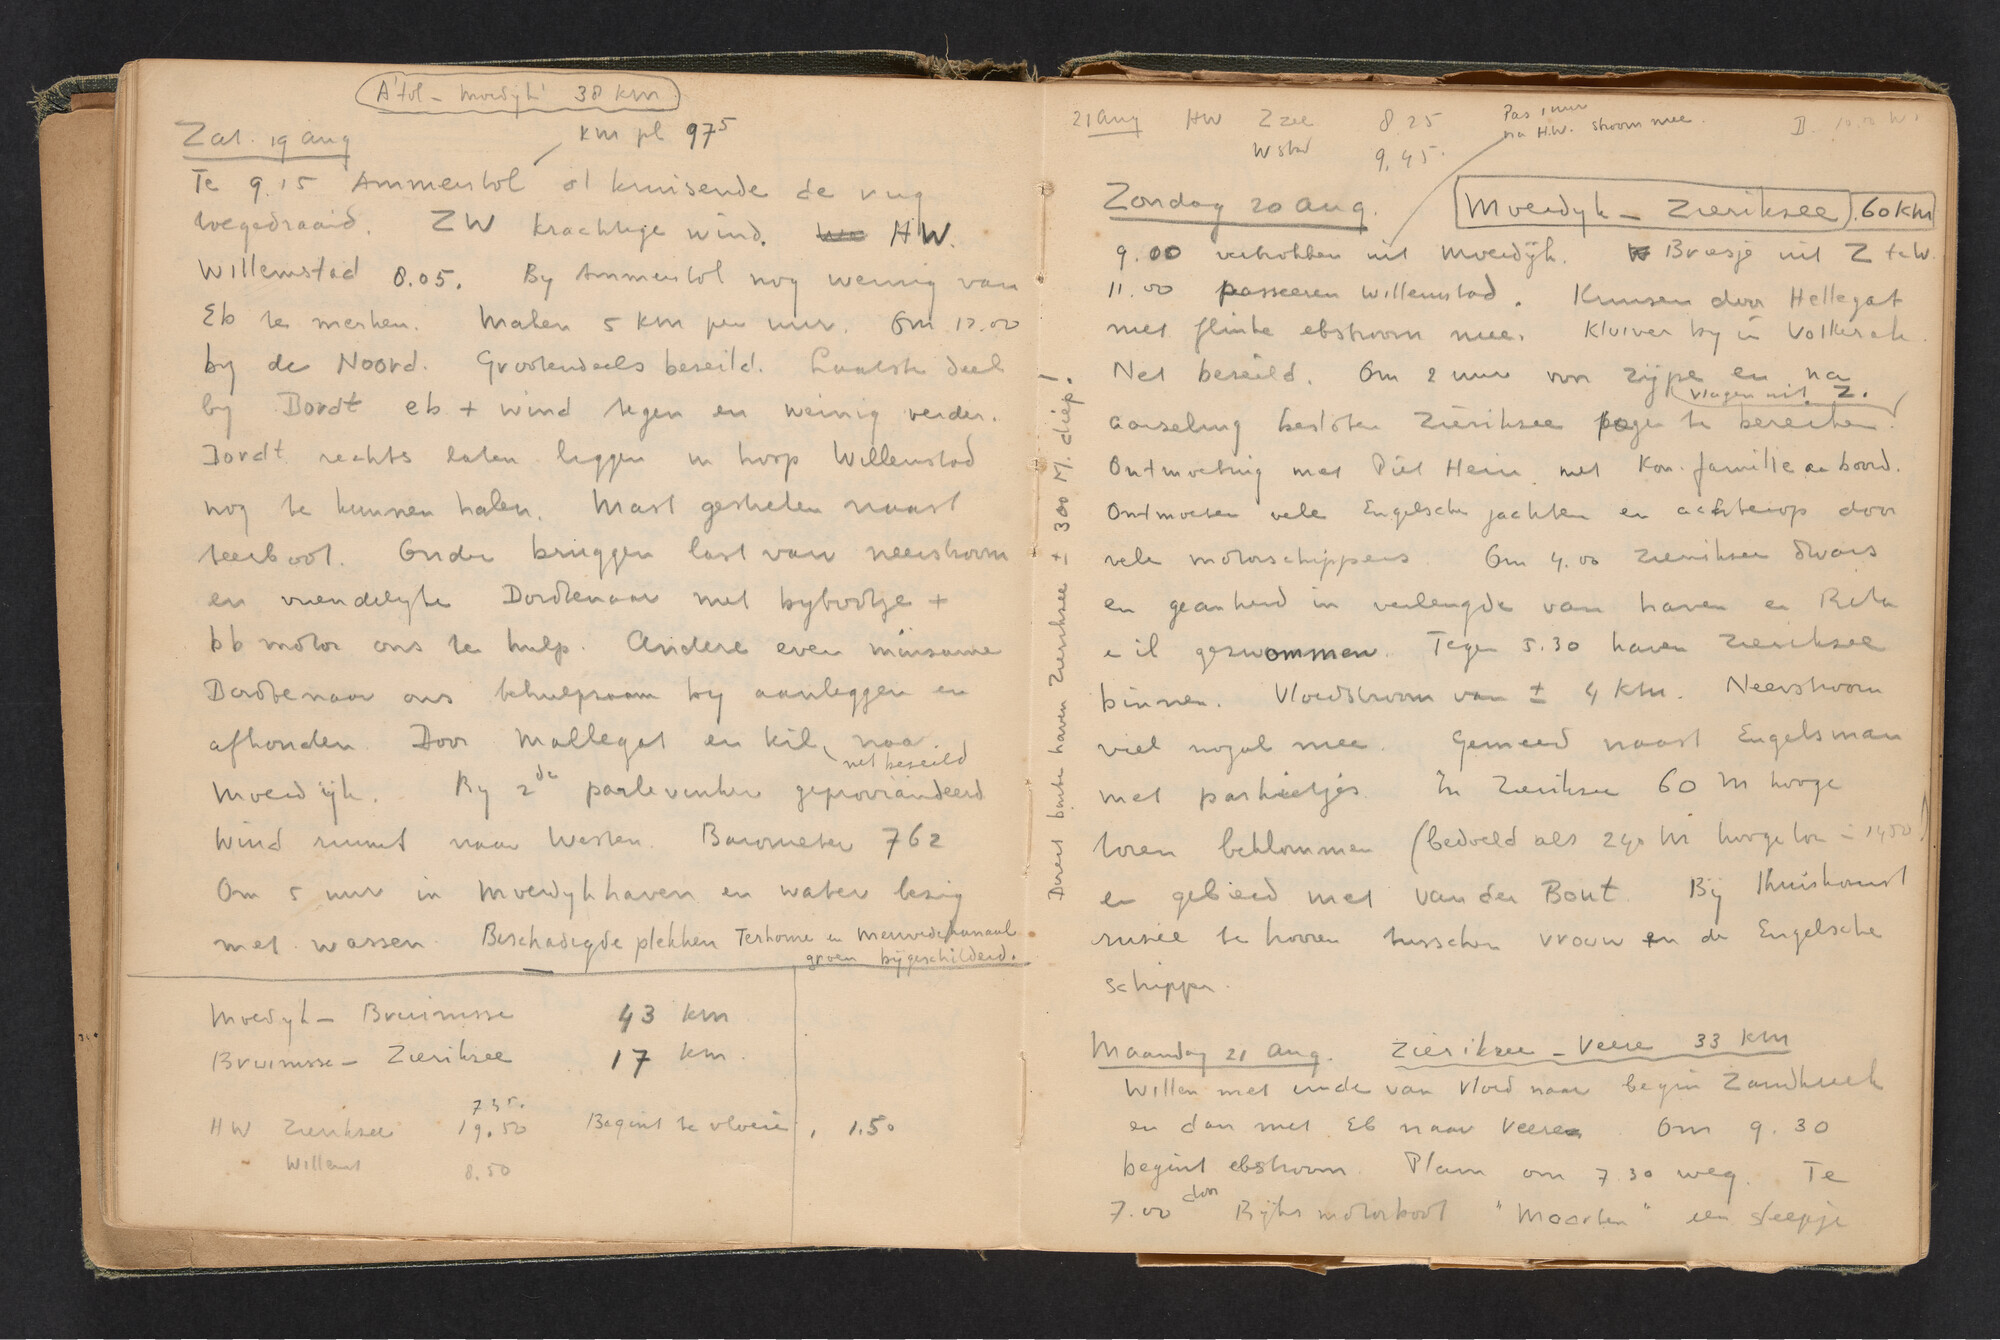 A'tol - Moerdijk 38 km
Zat. 19 Aug
km pl 97⁵
Te 9.15 Ammerstol al kruisende de rug
toegedraaid. ZW krachtige wind. HW.
Willemstad 8.05. By Ammerstol nog weinig van
Eb te merken. Maken 5 km per uur. Om 12.00
by de Noord. Grootendeels bezeild. Laatste deel
by Dordt eb + wind tegen en weinig verder.
Dordt rechts laten liggen in hoop Willemstad
nog te kunnen halen. Mast gestreken naast
veerboot. Onder bruggen last van neerstroom
en vriendelyke Dordtenaar met bybootje +
bb motor ons te hulp. Andere even
Dordtenaar ons behulpzaam by aanleggen en
afhouden. Door Mallegat en Kil, naar
net bezeild
Moerdijk. By 2de parlevinker geproviandeerd
Wind ruimt naar Westen. Barometer 762
Om 5 uur in Moerdykhaven en water bezig
met wassen. Beschadigde plekken Terhorne en Merwedekanaal
groen bijgeschilderd.
Moerdyk - Bruinisse 43 km
Bruinisse - Zieriksee 17 km.
7 35.
HW Zieriksee 19.50 Begint te vloeien, 1.50
Willemst 8.50
Direct buiten haven Zieriksee ± 300 M. diep!
21 Aug HW Zzee 8.25
W stad 9.45.
Pas 1 uur
na H.W. stroom mee.
Zondag 20 Aug. Moerdyk - Zieriksee 60 KM
9.00 vertrokken uit Moerdijk. Briesje uit Z t. W.
11.00 passeeren Willemstad. Kruisen door Hellegat
met flinke ebstroom mee. Kluiver by in Volkerak.
Net bezeild. Om 2 uur voor Zijpe en na
vlagen uit Z.
aarseling besloten Zieriksee pogen te bereiken.
Ontmoeting met Piet Hein met Kon. familie aan boord.
Ontmoeten vele Engelsche jachten en achterop door
vele motorschippers. Om 4.00 Zieriksee dwars
en geankerd in verlengde van haven en Rita
e il gezwommen. Tegen 5.30 haven Zieriksee
binnen. Vloedstroom van ± 4 KM. Neerstroom
viel nogal mee. Gemeerd naast Engelsman
met parkietjes. In Zieriksee 60 M hooge
toren beklommen (bedoeld als 240 M hooge tor in 1450)
en gebied met van der Bout. Bij thuiskomst
rusie te hooren tusschen vrouw en de Engelsche
schipper.
Maandag 21 Aug. Zieriksee - Veere 33 KM
Willen met einde van vloed naar begin Zandkreek
en dan met Eb naar Veere. Om 9.30
begint ebstroom. Plan om 7.30 weg. Te
7.00 door Rijks motorboot "Maarten" een sleepje